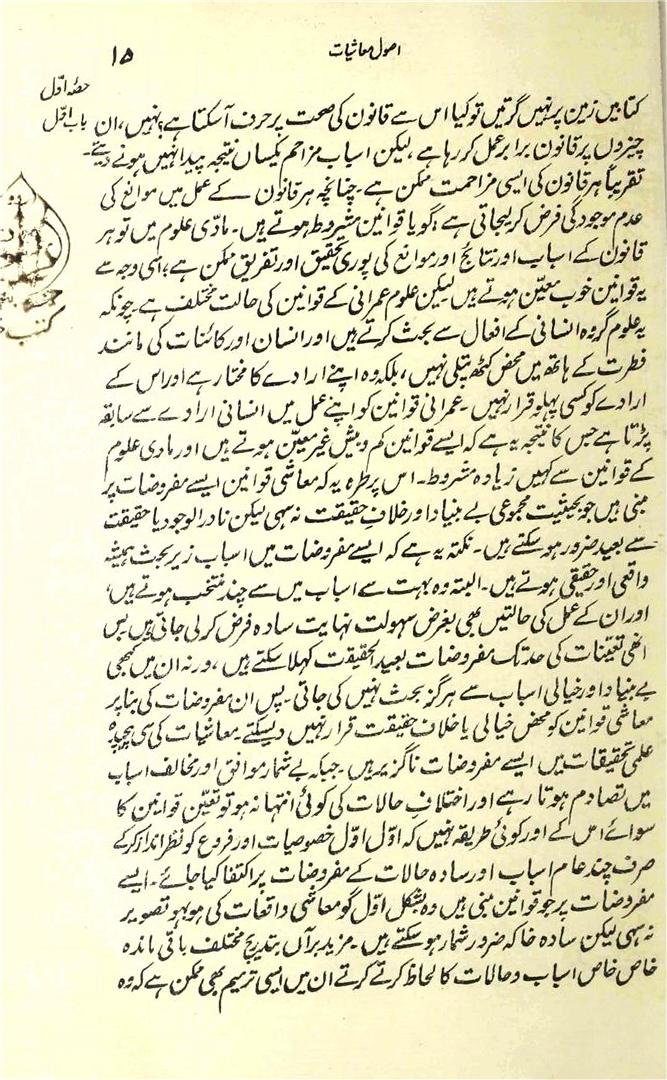 اصول معاشیات
۱۵
حصۂ اوّل
باب اوّل
کتابیں زمین پر نہیں گرتیں تو کیا اس سے قانون کی صحت پر حرف آ سکتا ہے؟ نہیں، ان
چیزوں پر قانون برابر عمل کر رہا ہے، لیکن اسباب مزاحم یکساں نتیجہ پیدا نہیں ہونے دیتے۔
تقریباً ہر قانون کی ایسی مزاحمت ممکن ہے۔ چنانچہ ہر قانون کے عمل میں موانع کی
عدم موجودگی فرض کر لیجاتی ہے، گویا قوانین مشروط ہوتے ہیں۔ مادّی علوم میں تو ہر
قانون کے اسباب اور نتائج اور موانع کی پوری تحقیق اور تفریق ممکن ہے، اسی وجہ سے
یہ قوانین خوب معیّن ہوتے ہیں لیکن علوم عمرانی کے قوانین کی حالت مختلف ہے۔ چونکہ
یہ علوم گروہ انسانی کے افعال سے بحث کرتے ہیں اور انسان اور کائنات کی مانند
فطرت کے ہاتھ میں محض کٹھ پتلی نہیں، بلکہ وہ اپنے ارادے کا مختار ہے اور اس کے
ارادے کو کسی پہلو قرار نہیں۔ عمرانی قوانین کو اپنے عمل میں انسانی ارادے سے سابقہ
پڑتا ہے جس کا نتیجہ یہ ہے کہ ایسے قوانین کم و بیش غیر معیّن ہوتے ہیں اور مادی علوم
کے قوانین سے کہیں زیادہ مشروط۔ اس پر طرہ یہ کہ معاشی قوانین ایسے مفروضات پر
مبنی ہیں جو بحیثیت مجموعی بے بنیاد اور خلاف حقیقت نہ سہی لیکن نادر الوجود یا حقیقت
سے بعید ضرور ہو سکتے ہیں۔ نکتہ یہ ہے کہ ایسے مفروضات میں اسباب زیر بحث ہمیشہ
واقعی اور حقیقی ہوتے ہیں۔ البتہ وہ بہت سے اسباب میں سے چند منتخب ہوتے ہیں،
اور ان کے عمل کی حالتیں بھی بغرض سہولت نہایت سادہ فرض کر لی جاتی ہیں پس
انھی تعیّنات کی حد تک مفروضات بعید الحقیقت کہلا سکتے ہیں، ورنہ ان میں کبھی
بے بنیاد اور خیالی اسباب سے ہرگز بحث نہیں کی جاتی۔ پس ان مفروضات کی بنا پر
معاشی قوانین کو محض خیالی یا خلاف حقیقت قرار نہیں دیسکتے۔ معاشیات کی سی پیچیدہ
علمی تحقیقات میں ایسے مفروضات ناگزیر ہیں۔ جبکہ بے شمار موافق اور مخالف اسباب
میں تصادم ہوتا رہے اور اختلافِ حالات کی کوئی انتہا نہ ہو تو تعیّن قوانین کا
سوائے اس کے اور کوئی طریقہ نہیں کہ اوّل اوّل خصوصیات اور فروع کو نظر انداز کر کے
صرف چند عام اسباب اور سادہ حالات کے مفروضات پر اکتفا کیا جائے۔ ایسے
مفروضات پر جو قوانین مبنی ہیں وہ بشکل اوّل گو معاشی واقعات کی ہو بہو تصویر
نہ سہی لیکن سادہ خاکہ ضرور شمار ہو سکتے ہیں۔ مزید برآں بتدریج مختلف باقی ماندہ
خاص خاص اسباب و حالات کا لحاظ کرتے کرتے ان میں ایسی ترمیم بھی ممکن ہے کہ وہ